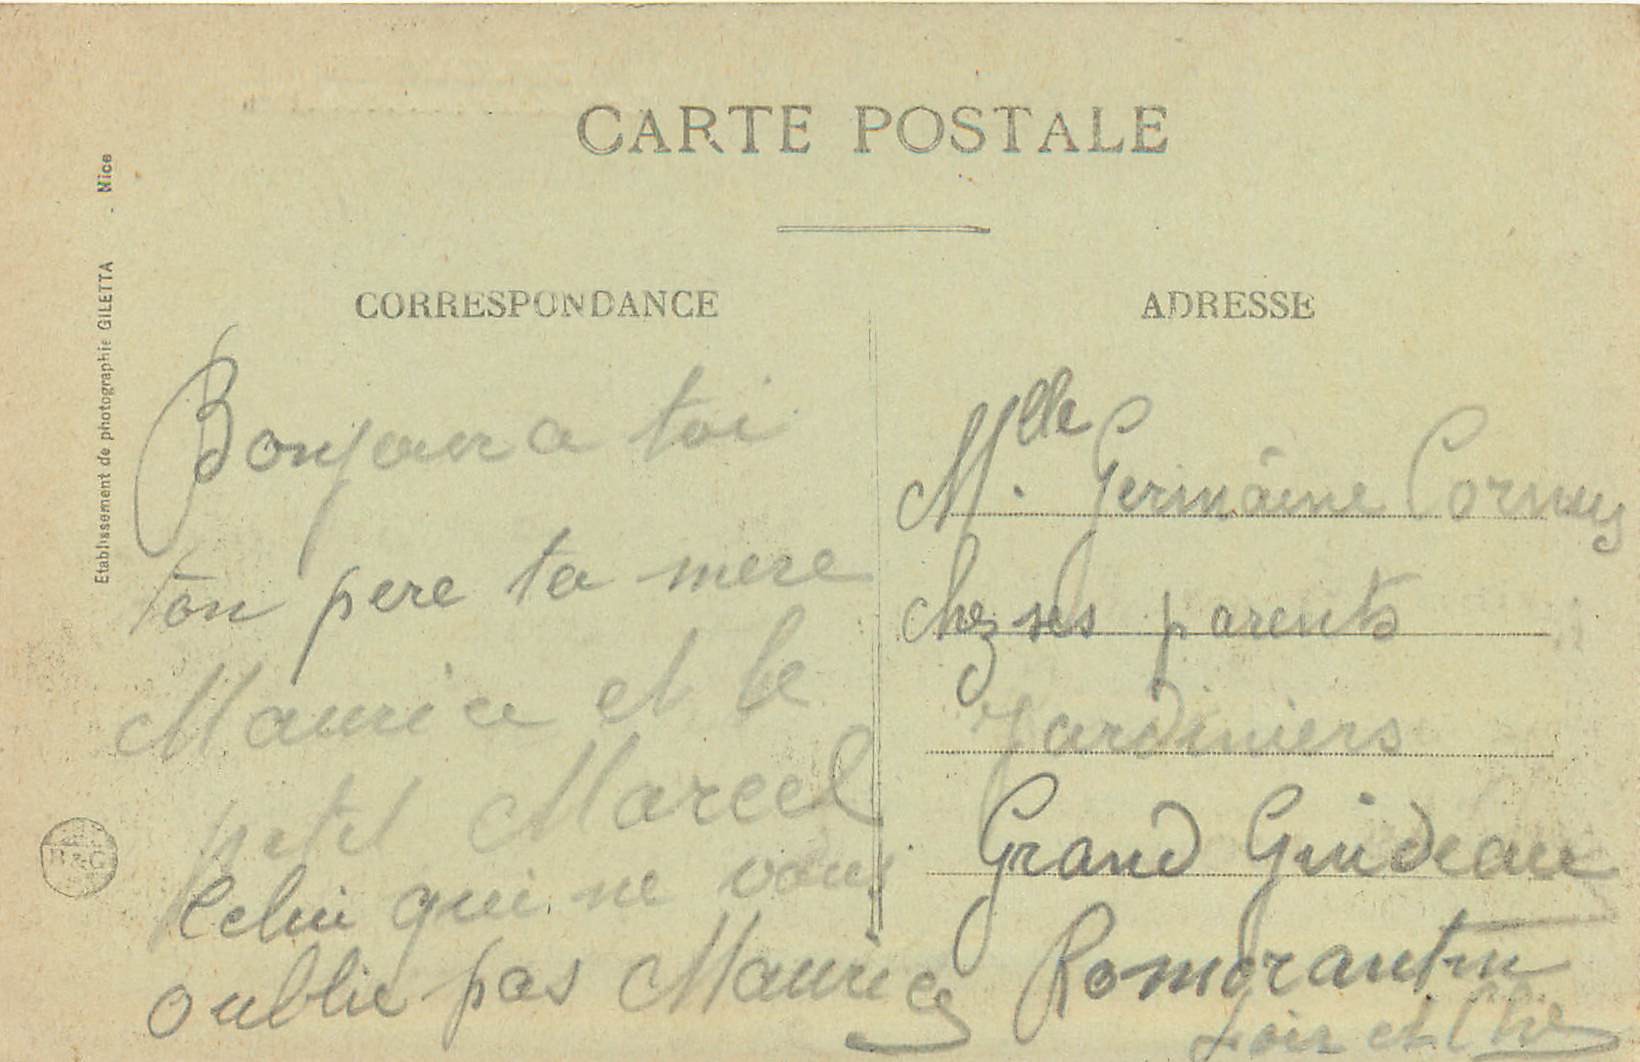 CARTE POSTALE
CORRESPONDANCE
Bonjour a toi
ton pere ta mere
Maurice et le
petit Marcel
Celui qui ne vous
oublie pas Maurice
ADRESSE
Mlle. Germaine Cornuy
chez ses parents
Jardiniers
Grand Guideau
Romorantin
Loir et Cher
Etablissement de photographie GILETTA - Nice